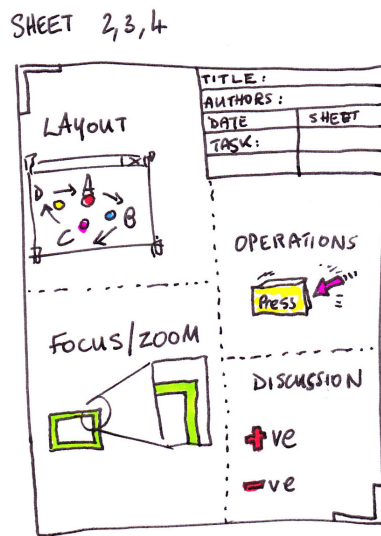 SHEET 2,3,4
TITLE:
AUTHORS:
DATE SHEET
TASK:
LAYOUT
X
D A
C B
OPERATIONS
Press
FOCUS/ZOOM
DISCUSSION
+ve
-ve